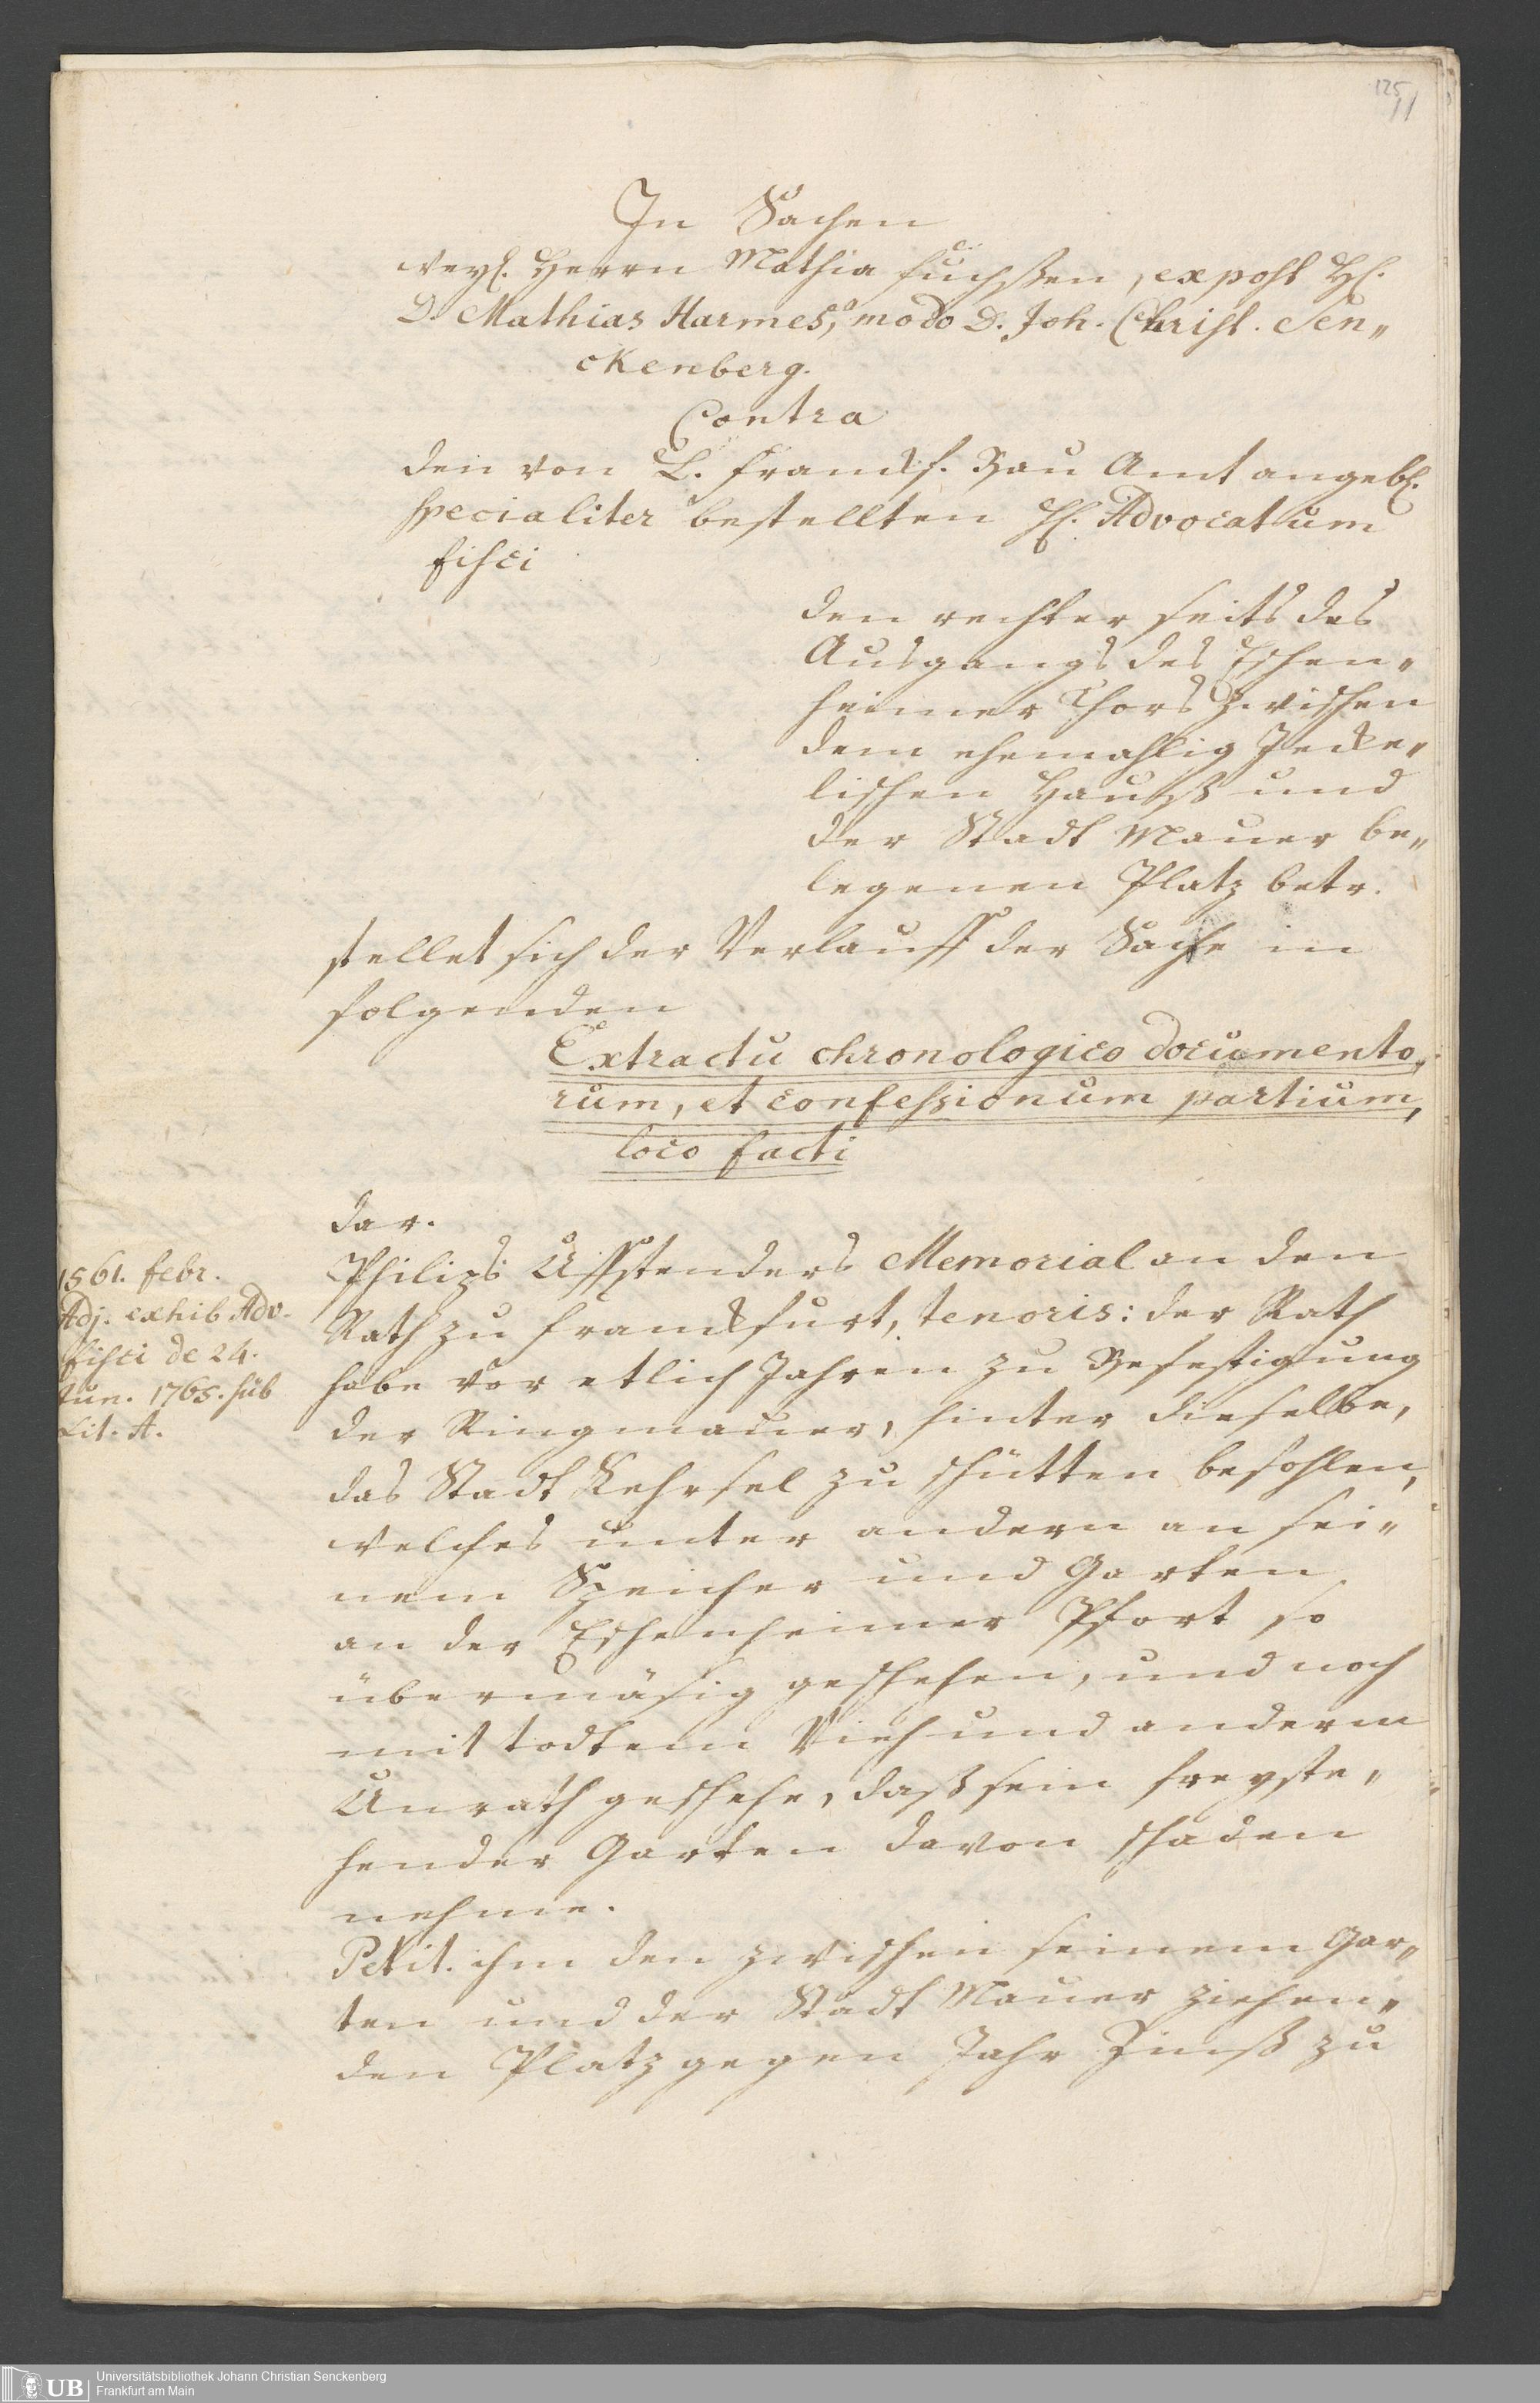 125
11
In Sachen
weyl. Herrn Mathia Fuchßen, ex post H.
D. Mathias Harmes, modo D. Joh. Christ. Sen„
ckenberg.
Contra
den von L. Franckf. Bau Amt angebl.
specialiter bestellten H. Advocatum
fisci
den rechter seits des
Ausgangs des Eschen„
heimer Thors zwischen
dem ehemahlig Jecke„
lischen Hauß und
der Stadt Mauer be„
legenen Platz betr.
stellet sich der Verlauff der Sache in
folgenden
Extractu chronologico documento„
rum, et confessionum partium,
loco facti
dar.
1561. febr.
Adj. exhib Adv.
fisci de 24.
Jun. 1765. sub
Lit. A.
Philips Uffstenders Memorial an den
Rath zu Franckfurt, tenoris: der Rath
habe vor etlich Jahren zu Befestigung
der Ringmauer, hinter dieselbe,
das Stadt Kehrsel zu schütten befohlen,
welches unter andern an sei„
nem Speicher und Garten
an der Eschenheimer Pfort so
übermäsig geschehen, und noch
mit todtem Vieh und anderm
Unrath geschehe, daß sein freyste„
hender Garten davon schaden
nehme.
Petit. ihm den zwischen seinem Gar„
ten und der Stadt Mauer ziehen„
den Platz gegen Jahr Zinß zu
UB
Universitätsbibliothek Johann Christian Senckenberg
Frankfurt am Main